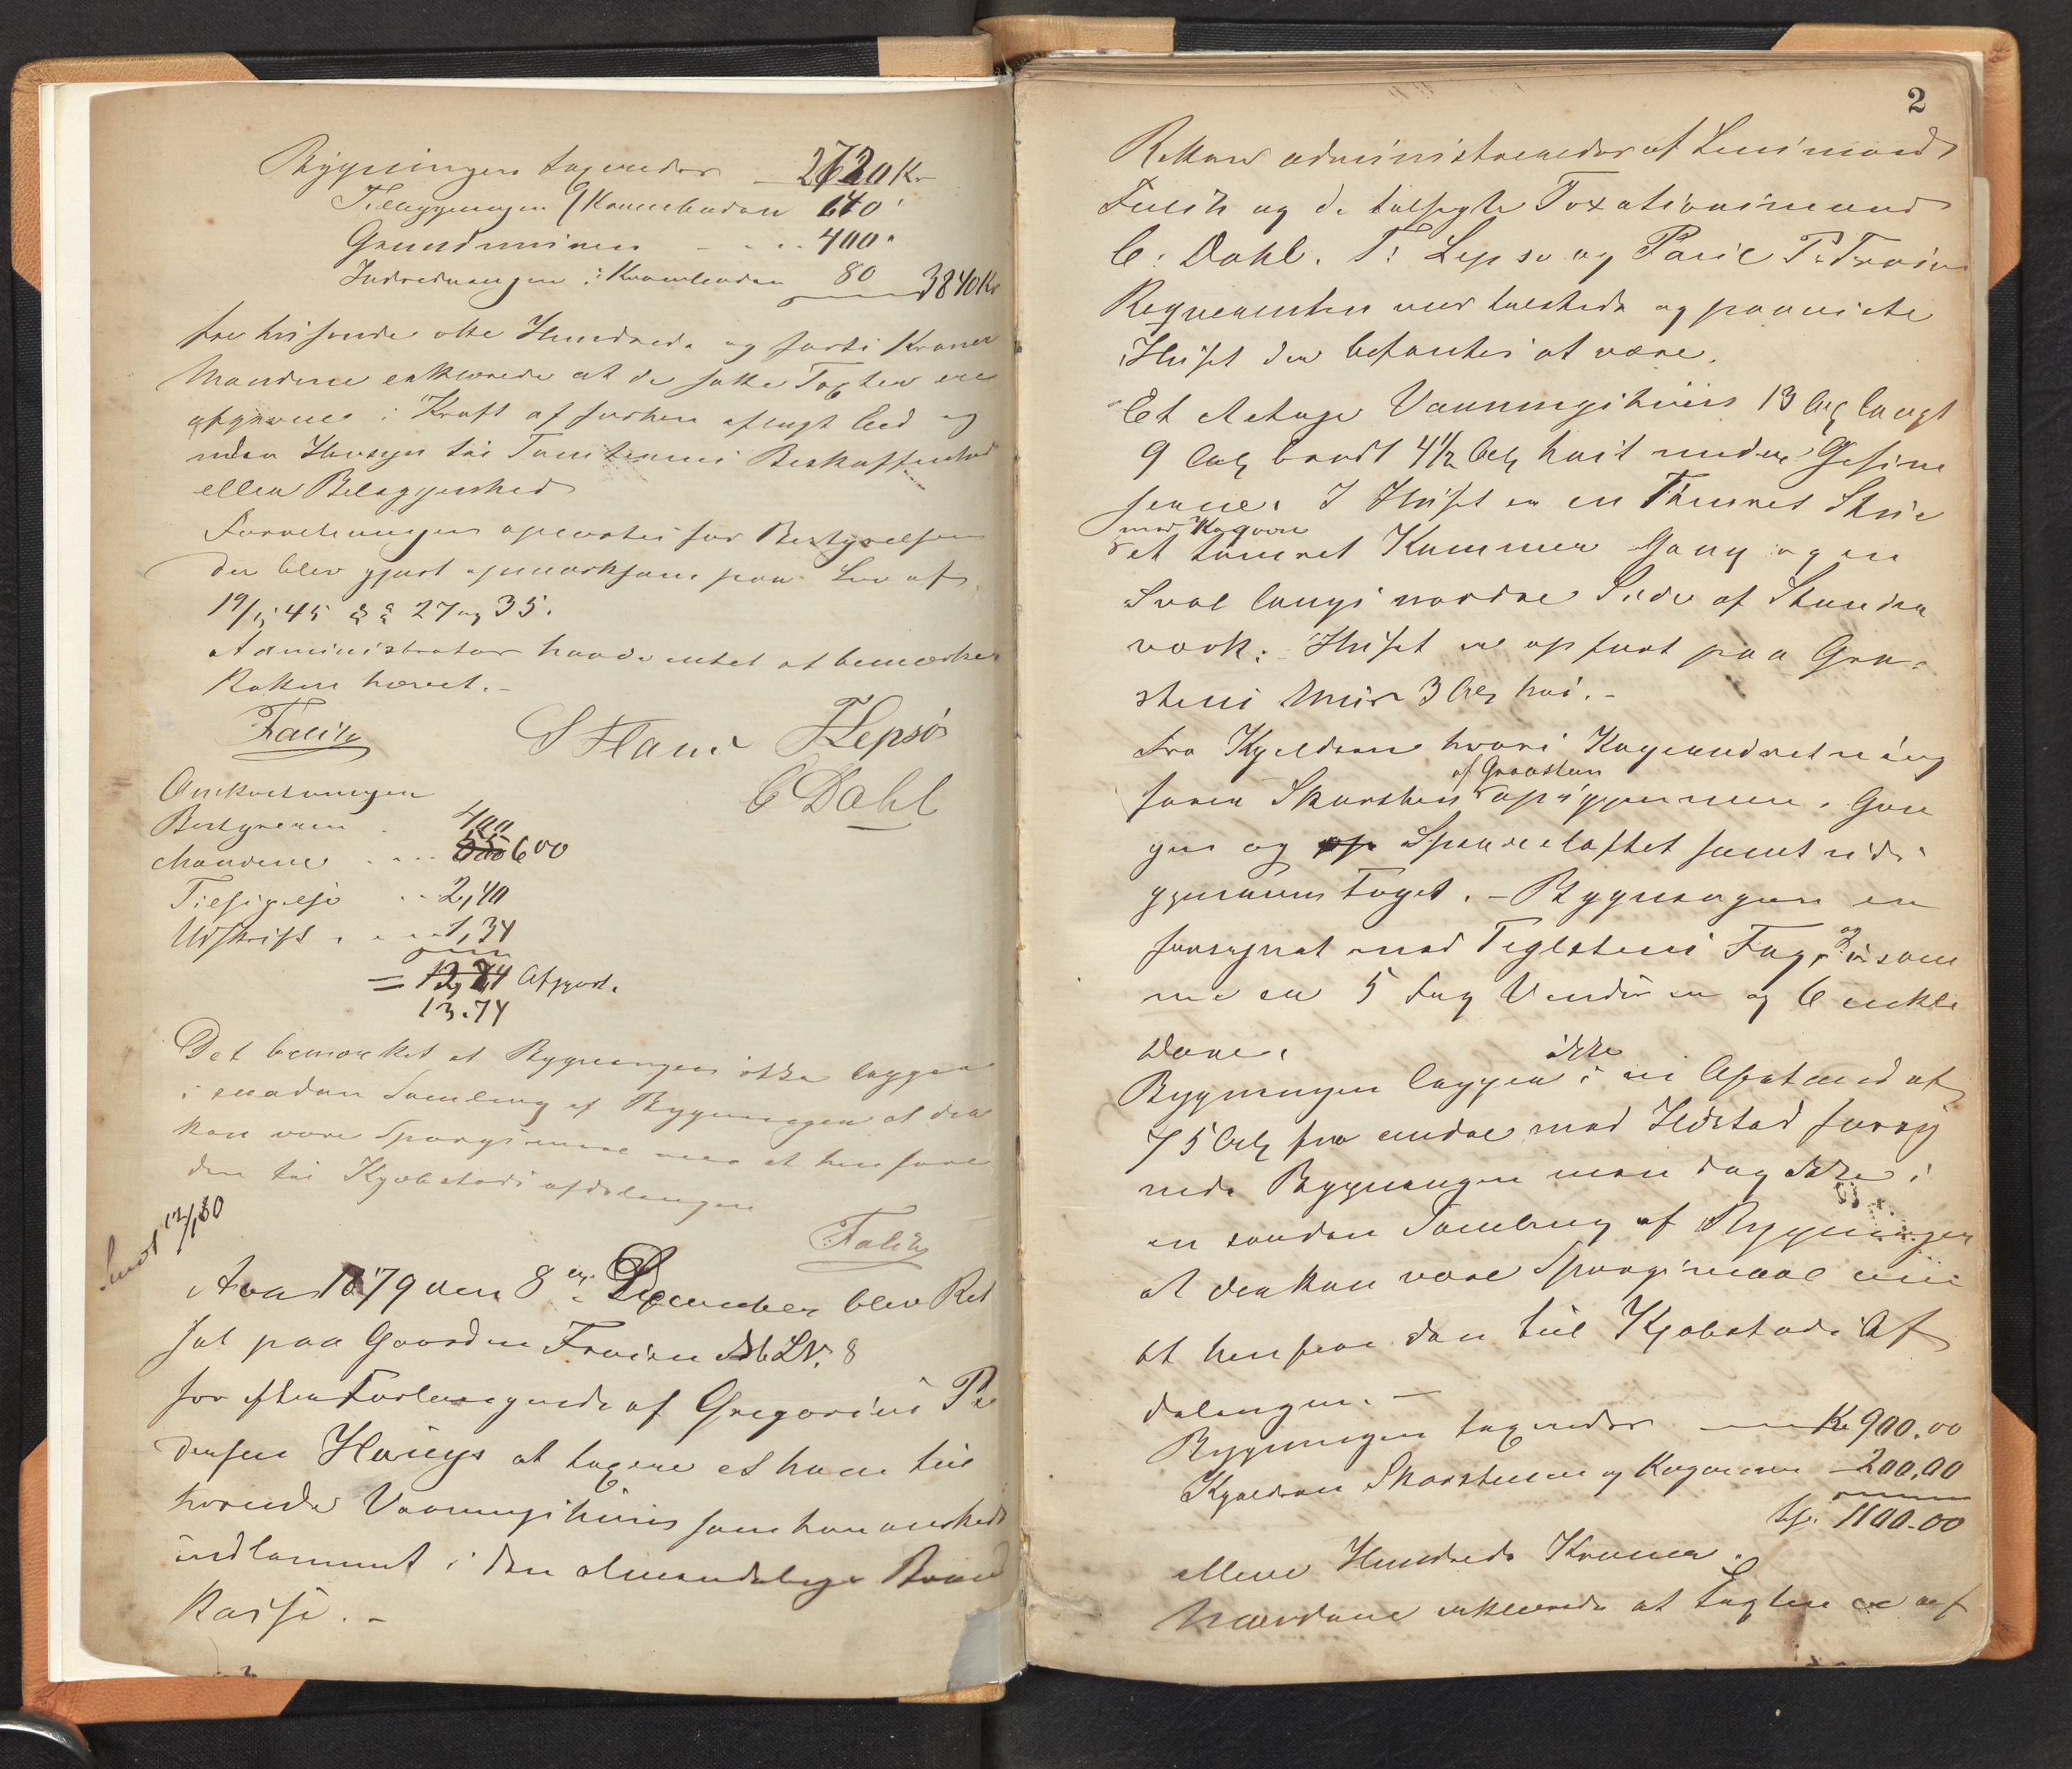 Bygningen taxeredes 2720 Kr
Tilbygningen (Krambuden 640"
Grundmuren 400"
Indredningen i Kramboden 80 3840 Kr
tre tusende otte Hundrede og forti Kroner
Mændene erklærede at de satte Taxter ere
afgivne i Kraft af forhen aflagt Eed og
uden Hensyn til Tomtens Beskaffenhed
eller Beliggenhed
Forretningen oplæstes for Bestyrelsen
der blev gjort opmærksom paa Lov af
19/8 45 §§ 27 og 35.
Administrator havde intet at bemærke
Retten hævet.-
Falch S Hani T Lepsø
C Dahl
Omkostningen
Bestyreren . 400
Mændene .... 600
Tilsigelse .. 2,40
Udskrift .... 1,34
= 12,74 Afgjort.
13.74
Det bemærket at Bygningen ikke ligger
i saadan Samling af Bygninger at der
kan være Spørgsmaal om at henføre
den til Kjøbstads afdelingen
Falch
Sendt 12/1 80
Aar 1879 den 8de December blev Ret
sat paa Gaarden Frøien Mb LN. 8
for efter Forlangende af Gregorius Pe
dersen Haugs at taxere et ham til
hørende Vaaningshuus som han ønskede
indlemmet i den almindelige Brand
Kasse.-
2
Retten administreredes af Lensmand
Falch og de tilsagte Taxationsmænd
C. Dahl. T. Lepsø og Povel P. Frøien
Reqvirenten var tilstede og paaviste
Huset der befantes at være.
Et Etages Vaaningshuus 13 Al langt
9 Al bredt 4½ Al høit under Gesim
serne. I Huset er en Tømret Stue
med Kogovn
et tømret Kammer Gang og en
Sval langs nordre Side af Stuens
værk. Huset er opført paa Gra-
stens Muur 3 Al høi.-
Fra Kjelderen hvori Kogeindretning
fører Skorsten af Graasten opigjennem Gan
gen og Spærreloftet samt udi
gjennem Taget.- Bygningen er
forsynet med Teglstens Tag, og i samme
er 5 Fag Vinduer og 6 enkle
Døre.
Bygningen ligger ikke i en Afstand af
75 Al fra andre med Ildsted forsy
nede Bygninger men dog ikke i
en saadan Samling af Bygninger
at der kan være Spørgsmaal om
at henføre den til Kjøbstads Af
delingen.-
Bygningen taxeredes Kr 900.00
Kjelderen Skorstenen og Kogeovnen 200,00
1100.00
elleve Hundrede Kroner.
Mændene erklærede at Taxten er af